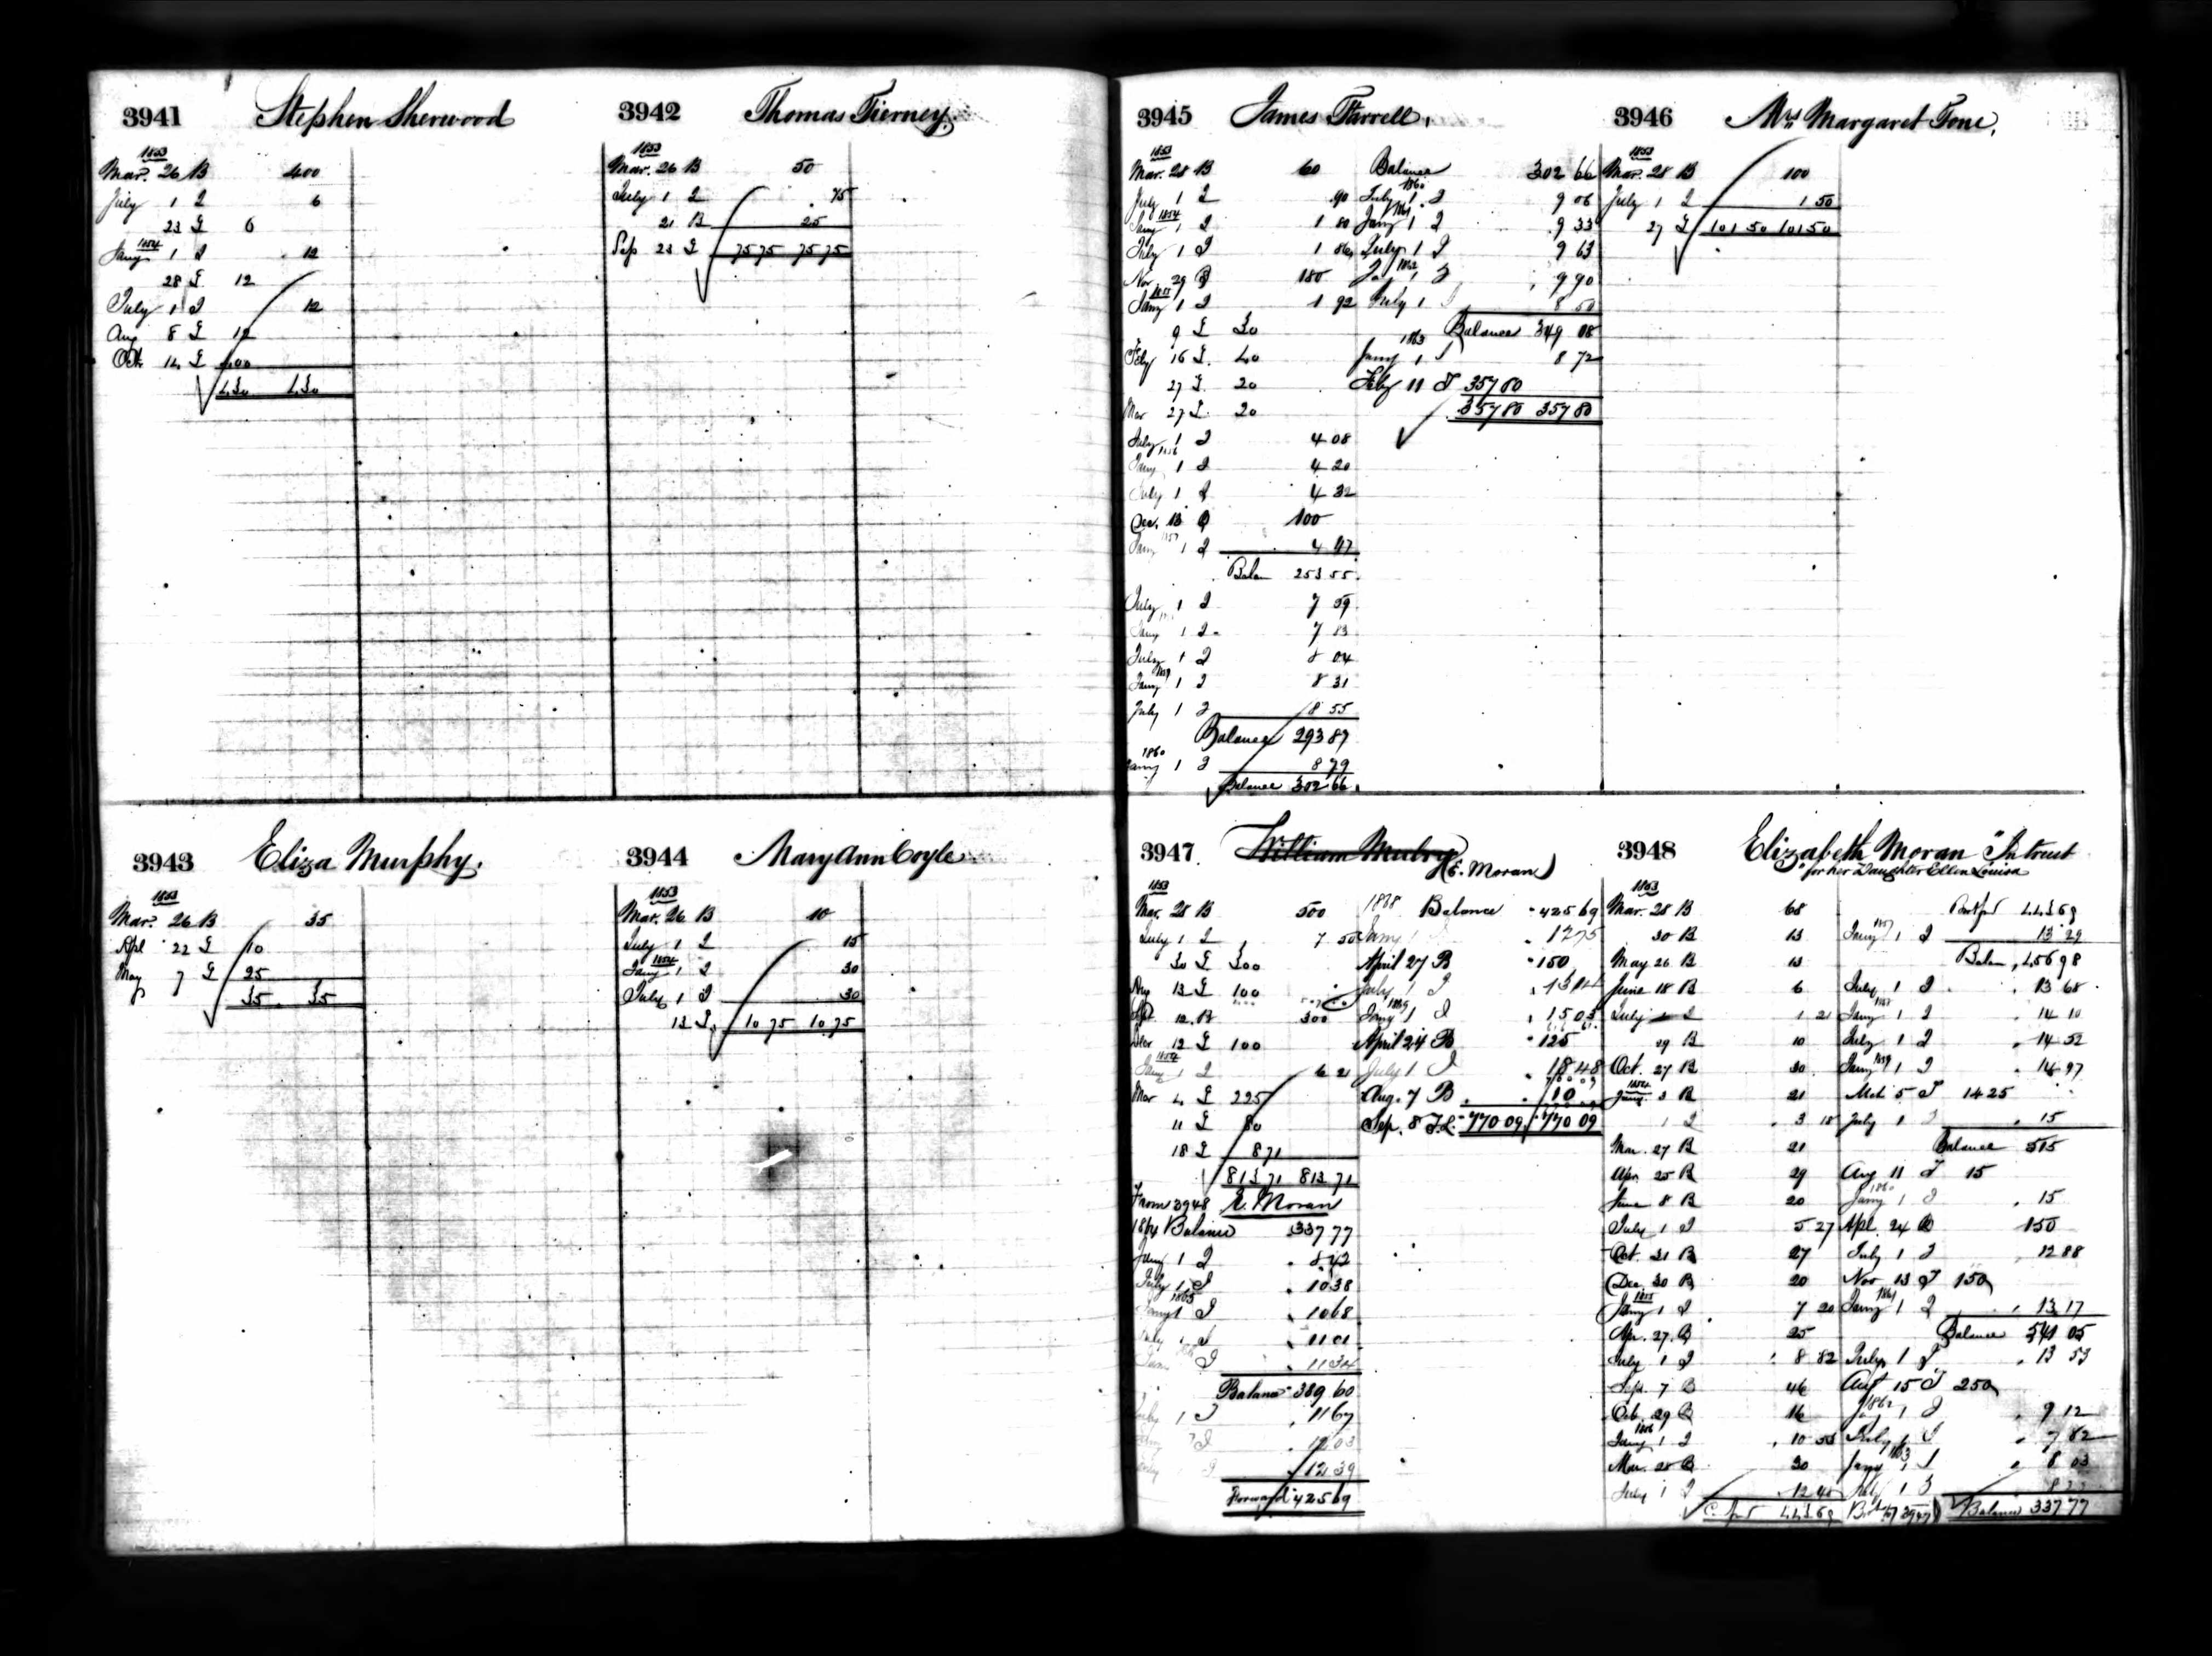 3941 Stephen Sherwood
1853
Mar. 26 B 400
July 1 I 6
23 L 6
1854
Jany 1 I 12
28 L 12
July 1 I 12
Aug 8 L 12
Oct 14 L 400
430 430
3942 Thomas Tierney
1853
Mar. 26 B 50
July 1 I 75
21 B 25
Sep 23 L 75 75 75 75
3943 Eliza Murphy.
1853
Mar. 26 B 35
Apl 22 L 10
May 7 L 25
35 35
3944 Mary Ann Coyle
1853
Mar. 26 B 10
July 1 I 15
1854
Jany 1 I 30
July 1 I 30
13 L 10 75 10 75
3945 James Farrell,
1853
Mar. 28 B 60
July 1 I 90
1854
Jany 1 I 1 80
July 1 I 1 86
Nov 29 B 180
1855
Jany 1 I 1 92
9 L 30
Feby 16 L 40
27 L 20
Mar 27 L 20
July 1 I 4 08
1856
Jany 1 I 4 20
July 1 I 4 32
Dec. 13 B 100
1857
Jany 1 I 4 47
Balan 253 55
July 1 I 7 59
Jany 1 I 7 83
July 1 I 8 04
1859
Jany 1 I 8 31
July 1 I 8 55
Balance 293 87
1860
Jany 1 I 8 79
Balance 302 66
Balance 302 66
1860
July 1 I 9 06
1861
Jany 1 I 9 33
July 1 I 9 63
1862
Jany 1 I 9 90
July 1 I 8 50
Balance 349 08
1863
Jany 1 I 8 72
Feby 11 L 357 80
357 80 357 80
3946 Mrs Margaret Tone,
1853
Mar. 28 B 100
July 1 I 1 50
27 L 101 50 101 50
3947 William
(E. Moran)
1853
Mar. 28 B 500
July 1 I 7 50
30 L 300
Aug 13 L 100
Sep 12 B 300
Decr 12 L 100
1854
Jany 1 I 6 21
Mar 4 L 225
11 L 80
18 L 8 71
813 71 813 71
From 3948 E. Moran
1864 Balance 337 77
Jany 1 I 8 42
July 1 I 10 38
1865
Jany 1 I 10 68
July 1 I 11 01
Jany I 11 34
Balance 389 60
July 1 I 11 67
I 12 03
I 12 39
Forward 425 69
1868 Balance 425 69
Jany 1 I 12 75
April 27 B 150
July 1 I 13 14
1869
Jany 1 I 15 03
April 24 B 125
July 1 I 18 48
Aug. 7 B 10
Sep. 8 L 770 09 770 09
3948 Elizabeth Moran "In trust
for her Daughter Ellen Louisa
1853
Mar. 28 B 68
30 B 13
May 26 B 13
June 18 B 6
July 1 I 1 21
29 B 10
Oct. 27 B 30
1854
Jany 3 B 21
1 I 3 18
Mar. 27 B 21
Apr. 25 B 29
June 8 B 20
July 1 I 5 27
Oct. 31 B 27
Dec. 30 B 20
1855
Jany 1 I 7 20
Apr. 27 B 25
July 1 I 8 82
Sep. 7 B 46
Oct. 29 B 16
1856
Jany 1 I 10 53
Mar. 28 B 30
July 1 I 12 48
443 69
443 69
1857
Jany 1 I 13 29
Balan 456 98
July 1 I 13 68
Jany 1 I 14 10
July 1 I 14 52
1859
Jany 1 I 14 97
Mch 5 L 14 25
July 1 I 15
Balance 515
Aug 11 L 15
1860
Jany 1 I 15
Apl. 24 B 150
July 1 I 12 88
Nov 13 L 150
1861
Jany 1 I 13 17
Balance 541 05
July 1 I 13 53
Augt 15 L 250
1862
Jany 1 I 9 12
July 1 I 7 82
1863
Jany 1 I 8 03
July 1 I
Balance 337 77